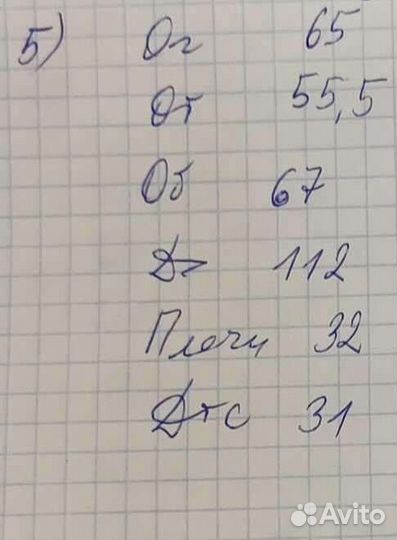 5) Ог 65
От 55,5
Об 67
Дг 112
Плечи 32
Дтс 31
Avito